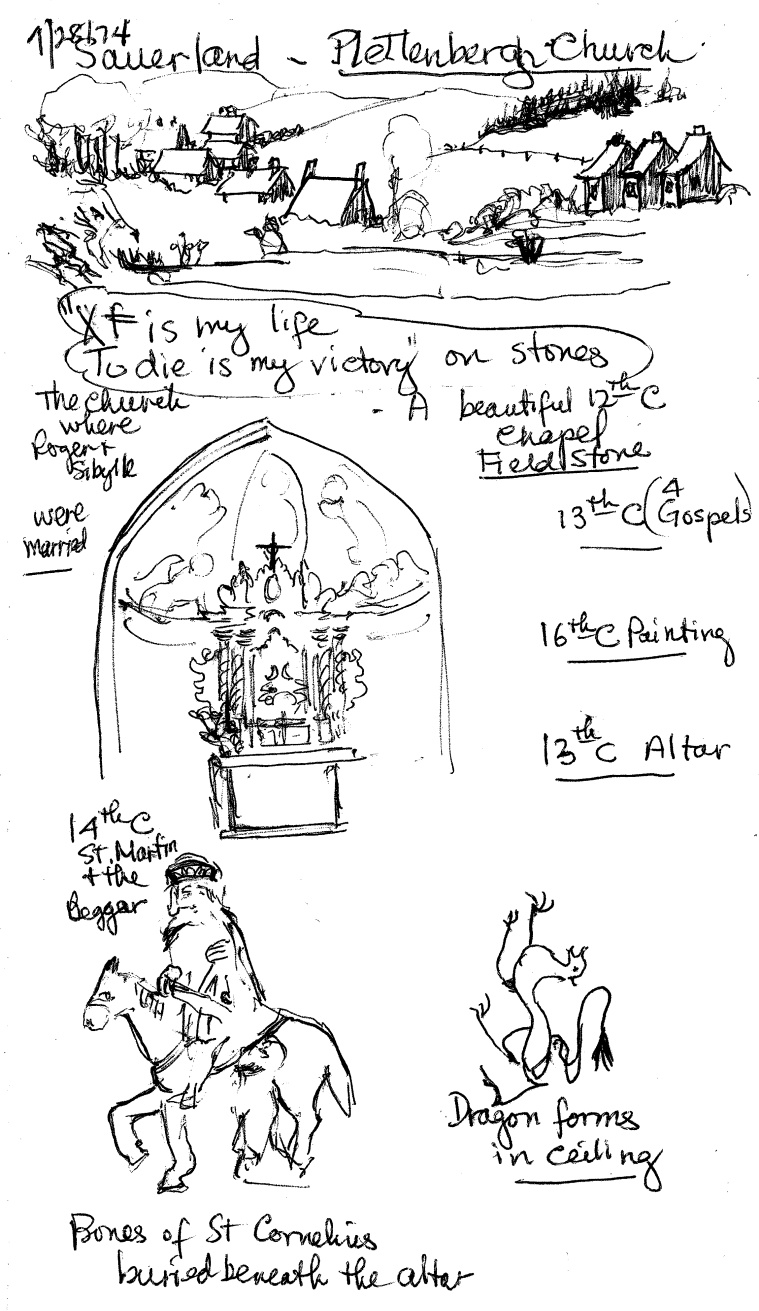 1/28/74
Sauerland - Plettenbergh Church
"Xt is my life
To die is my victory" on stones
The church
where
Roger +
Sibylle
were
married
- A beautiful 12th C
Chapel
Field Stone
13th C (4 Gospels)
16th C Painting
13th C Altar
14th C
St. Martin
+ the
Beggar
Dragon forms
in ceiling
Bones of St Cornelius
buried beneath the altar